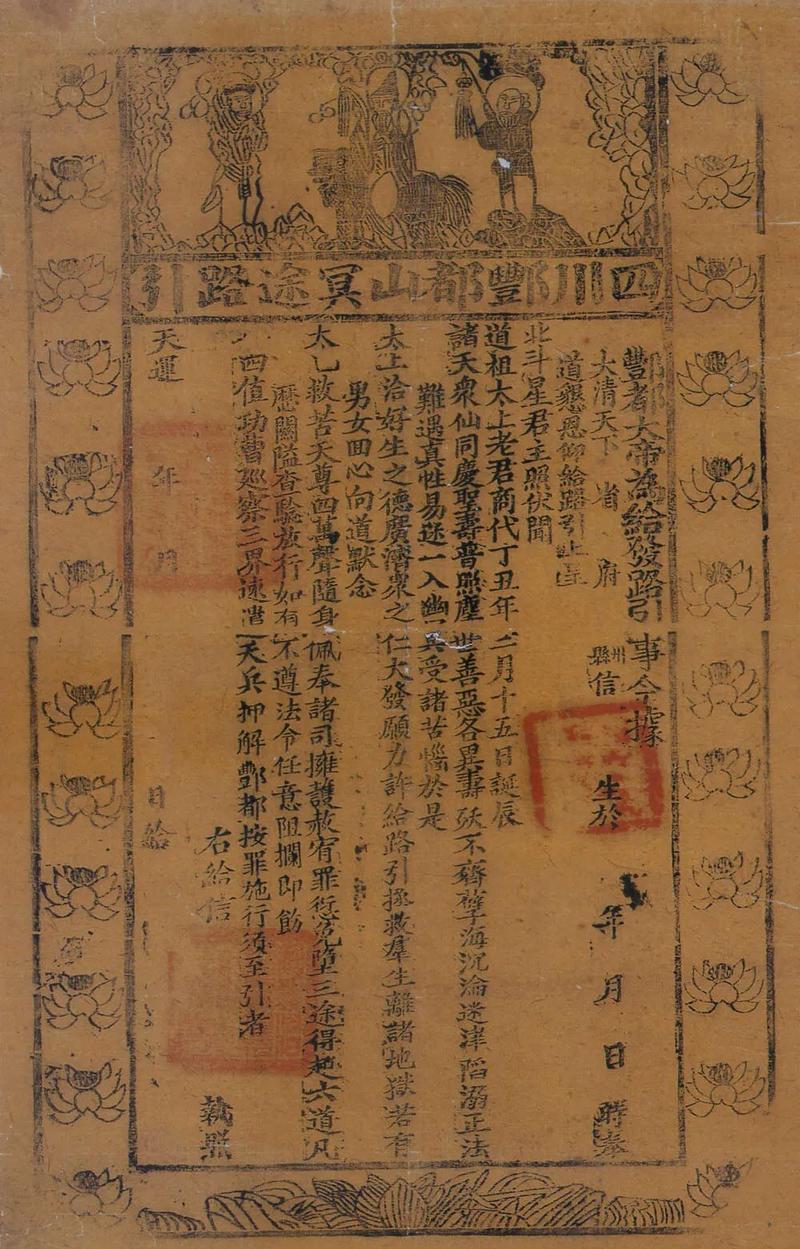 四川酆都山冥途路引
酆都大帝為給發路引事今據
大清天下 省 府 州縣信 生於 年 月 日 時奉
道懇恩仰給路引上呈
北斗星君主照伏聞
道祖太上老君商代丁丑年二月十五日誕辰
諸天衆仙同慶聖壽普照塵世善惡各異壽殀不齊孽海沉淪迷津陷溺正法
難遇真性易迷一入幽冥受諸苦惱於是
太上洽好生之德廣濟衆之仁大發願力許給路引拯救羣生離諸地獄若有
男女回心向道默念
太乙救苦天尊四萬聲隨身佩奉諸司擁護赦宥罪愆免墮三途得超六道凡
歷關隘查驗放行如有不遵法令任意阻攔即飭
四值功曹廵察三界速遣天兵押解酆都按罪施行須至引者
右給信 執照
天運 年 月 日給